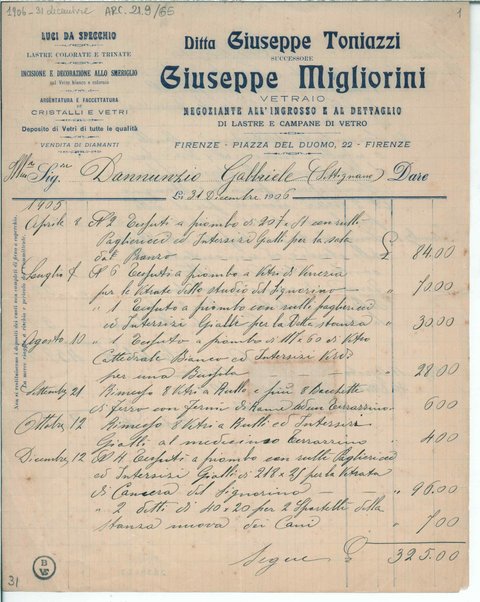 1906-31 dicembre
ARC. 21.9/66
1
LUCI DA SPECCHIO
LASTRE COLORATE E TRINATE
INCISIONE E DECORAZIONE ALLO SMERIGLIO
sul Vetro bianco e colorato
ARGENTATURA E FACCETTATURA
DI
CRISTALLI E VETRI
Deposito di Vetri di tutte le qualità
VENDITA DI DIAMANTI
Ditta Giuseppe Toniazzi
SUCCESSORE
Giuseppe Migliorini
VETRAIO
NEGOZIANTE ALL'INGROSSO E AL DETTAGLIO
DI LASTRE E CAMPANE DI VETRO
FIRENZE - PIAZZA DEL DUOMO, 22 - FIRENZE
Sig. Dannunzio Gabbriele (Settignano) Dare
Li 31 Dicembre 1906
1905
Aprile 8 N 2 Tessuti a piombo di 207 × 51 con rulli
Paglierici ed Intersizi Gialli per la sala
da Pranzo £ 84.00
Luglio 7 N 6 Tessuti a piombo a Vetri di Venezia
per le Vetrate dello studio del Signorino " 70.00
" 1 Tessuto a piombo con rulli paglierici
ed Intersizi Gialli per la Della stanza " 30.00
Agosto 10 " 1 Tessuto a piombo di 111 × 60 di Vetro
Cattedrale Bianco ed Intersizi Verdi
per una Bussola " 28.00
Settembre 21 Rimesso 8 Vetri a Rullo, e più 8 Bacchette
di ferro con fermi di Rame ad un Terrazzino " 6.00
Ottobre 12 Rimesso 8 Vetri a Rulli ed Intersizi
Gialli al medesimo Terrazzino " 4.00
Dicembre 12 N 4 Tessuti a piombo con rulli Paglierici
ed Intersizi Gialli di 218 × 35 per la Vetrata
di Camera del Signorino " 96.00
" 2 detti di 40 × 20 per 2 Sportelli della
stanza nuova dei Cani " 7.00
Segue £ 325.00
31